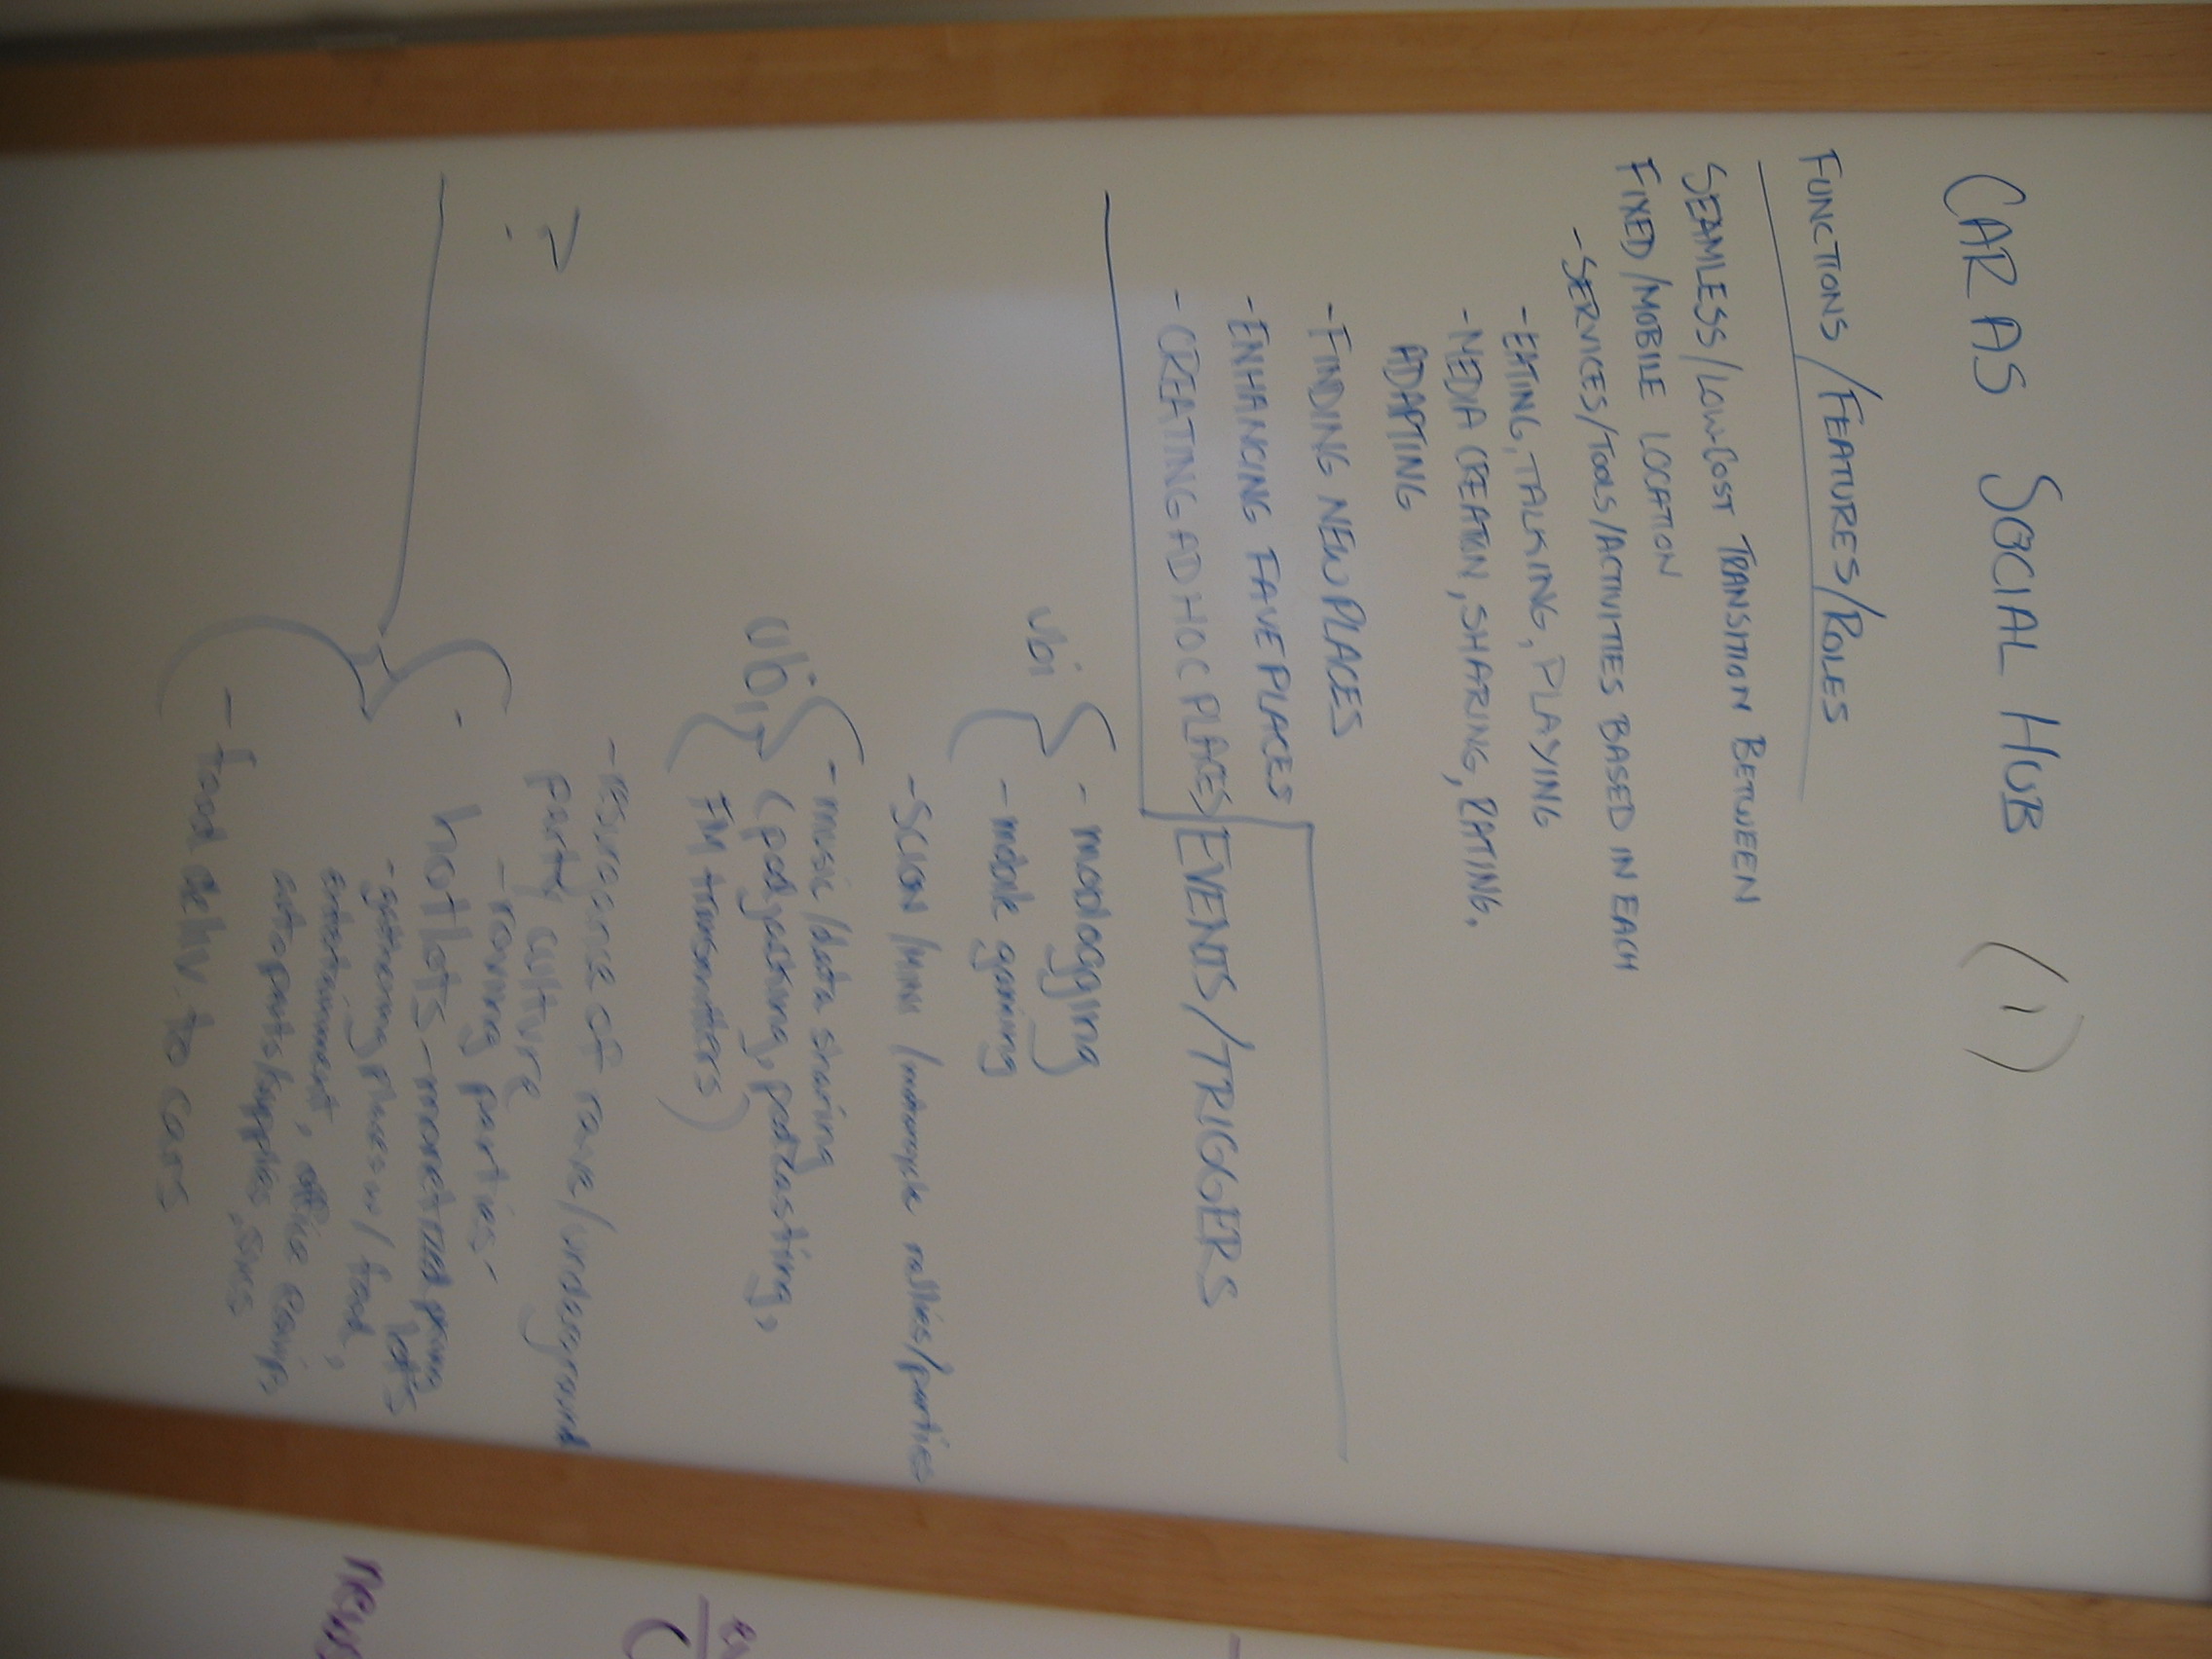 CAR AS SOCIAL HUB (1)
FUNCTIONS/FEATURES/ROLES
SEAMLESS/LOW-COST TRANSITION BETWEEN
FIXED/MOBILE LOCATION
- SERVICES/TOOLS/ACTIVITIES BASED IN EACH
- EATING, TALKING, PLAYING
- MEDIA CREATION, SHARING, RATING,
ADAPTING
- FINDING NEW PLACES
- ENHANCING FAVE PLACES
- CREATING AD HOC PLACES
EVENTS/TRIGGERS
ubi
- moologging
- mobile gaming
- SCION/MINI/motorcycle rallies/parties
ubi
- music/data sharing
(podjacking, podcasting,
FM transmitters)
?
- resurgence of rave/underground
party culture
- roving parties -
- hotlots - monetized parking lots
- gathering places w/ food,
entertainment, office
auto parts/supplies, svcs
- food deliv. to cars
news